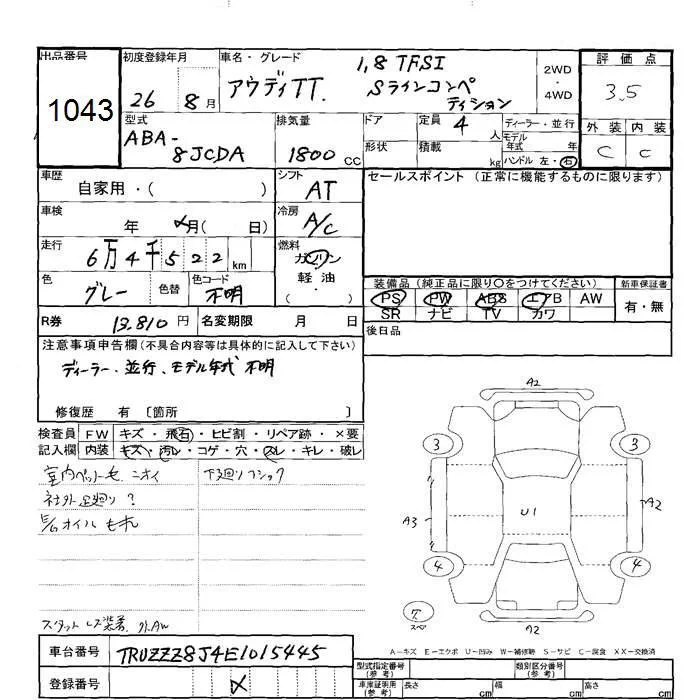 出品番号
1043
初度登録年月
26 8月
車名・グレード
アウディTT. 1,8 TFSI
Sラインコンペ
ティション
2WD
4WD
評価点
3.5
外装 内装
C C
型式
ABA-
8JCDA
排気量
1800 CC
ドア
形状
定員 4 人
積載 kg
ディーラー・並行
モデル
年式 年
ハンドル 左・右
車歴
自家用・( )
シフト
AT
セールスポイント (正常に機能するものに限ります)
車検
年 月( 日)
冷房
A/C
走行
6万4千522 km
燃料
ガソリン
軽油
・( )
色
グレー
色替
色コード
不明
装備品 (純正品に限り○をつけてください)
新車保証書
PS PW ABS エアB AW
SR ナビ TV カワ
有・無
R券 13.810円
名変期限 月 日
後日品
注意事項申告欄(不具合内容等は具体的に記入して下さい)
ディーラー.並行.モデル年式 不明
修復歴 有 〔箇所 〕
検査員
記入欄
FW キズ・飛石・ヒビ割・リペア跡・×要
内装 キズ・汚レ・コゲ・穴・スレ・キレ・破レ
室内ペット毛 ニオイ
下廻りフショク
社外足廻り?
オイルもれ
スタッドレス装着.
車台番号 TRUZZZ8J4E1015445
登録番号
A2
3 3
A3 U1 A2
4 4
スペア
A2
A―キズ E―エクボ U―凹み W―補修跡 S―サビ C―腐食 XX―交換済
型式指定番号
(参考)
類別区分番号
(参考)
車庫証明用
(参考)
長さ cm 幅 cm 高さ cm